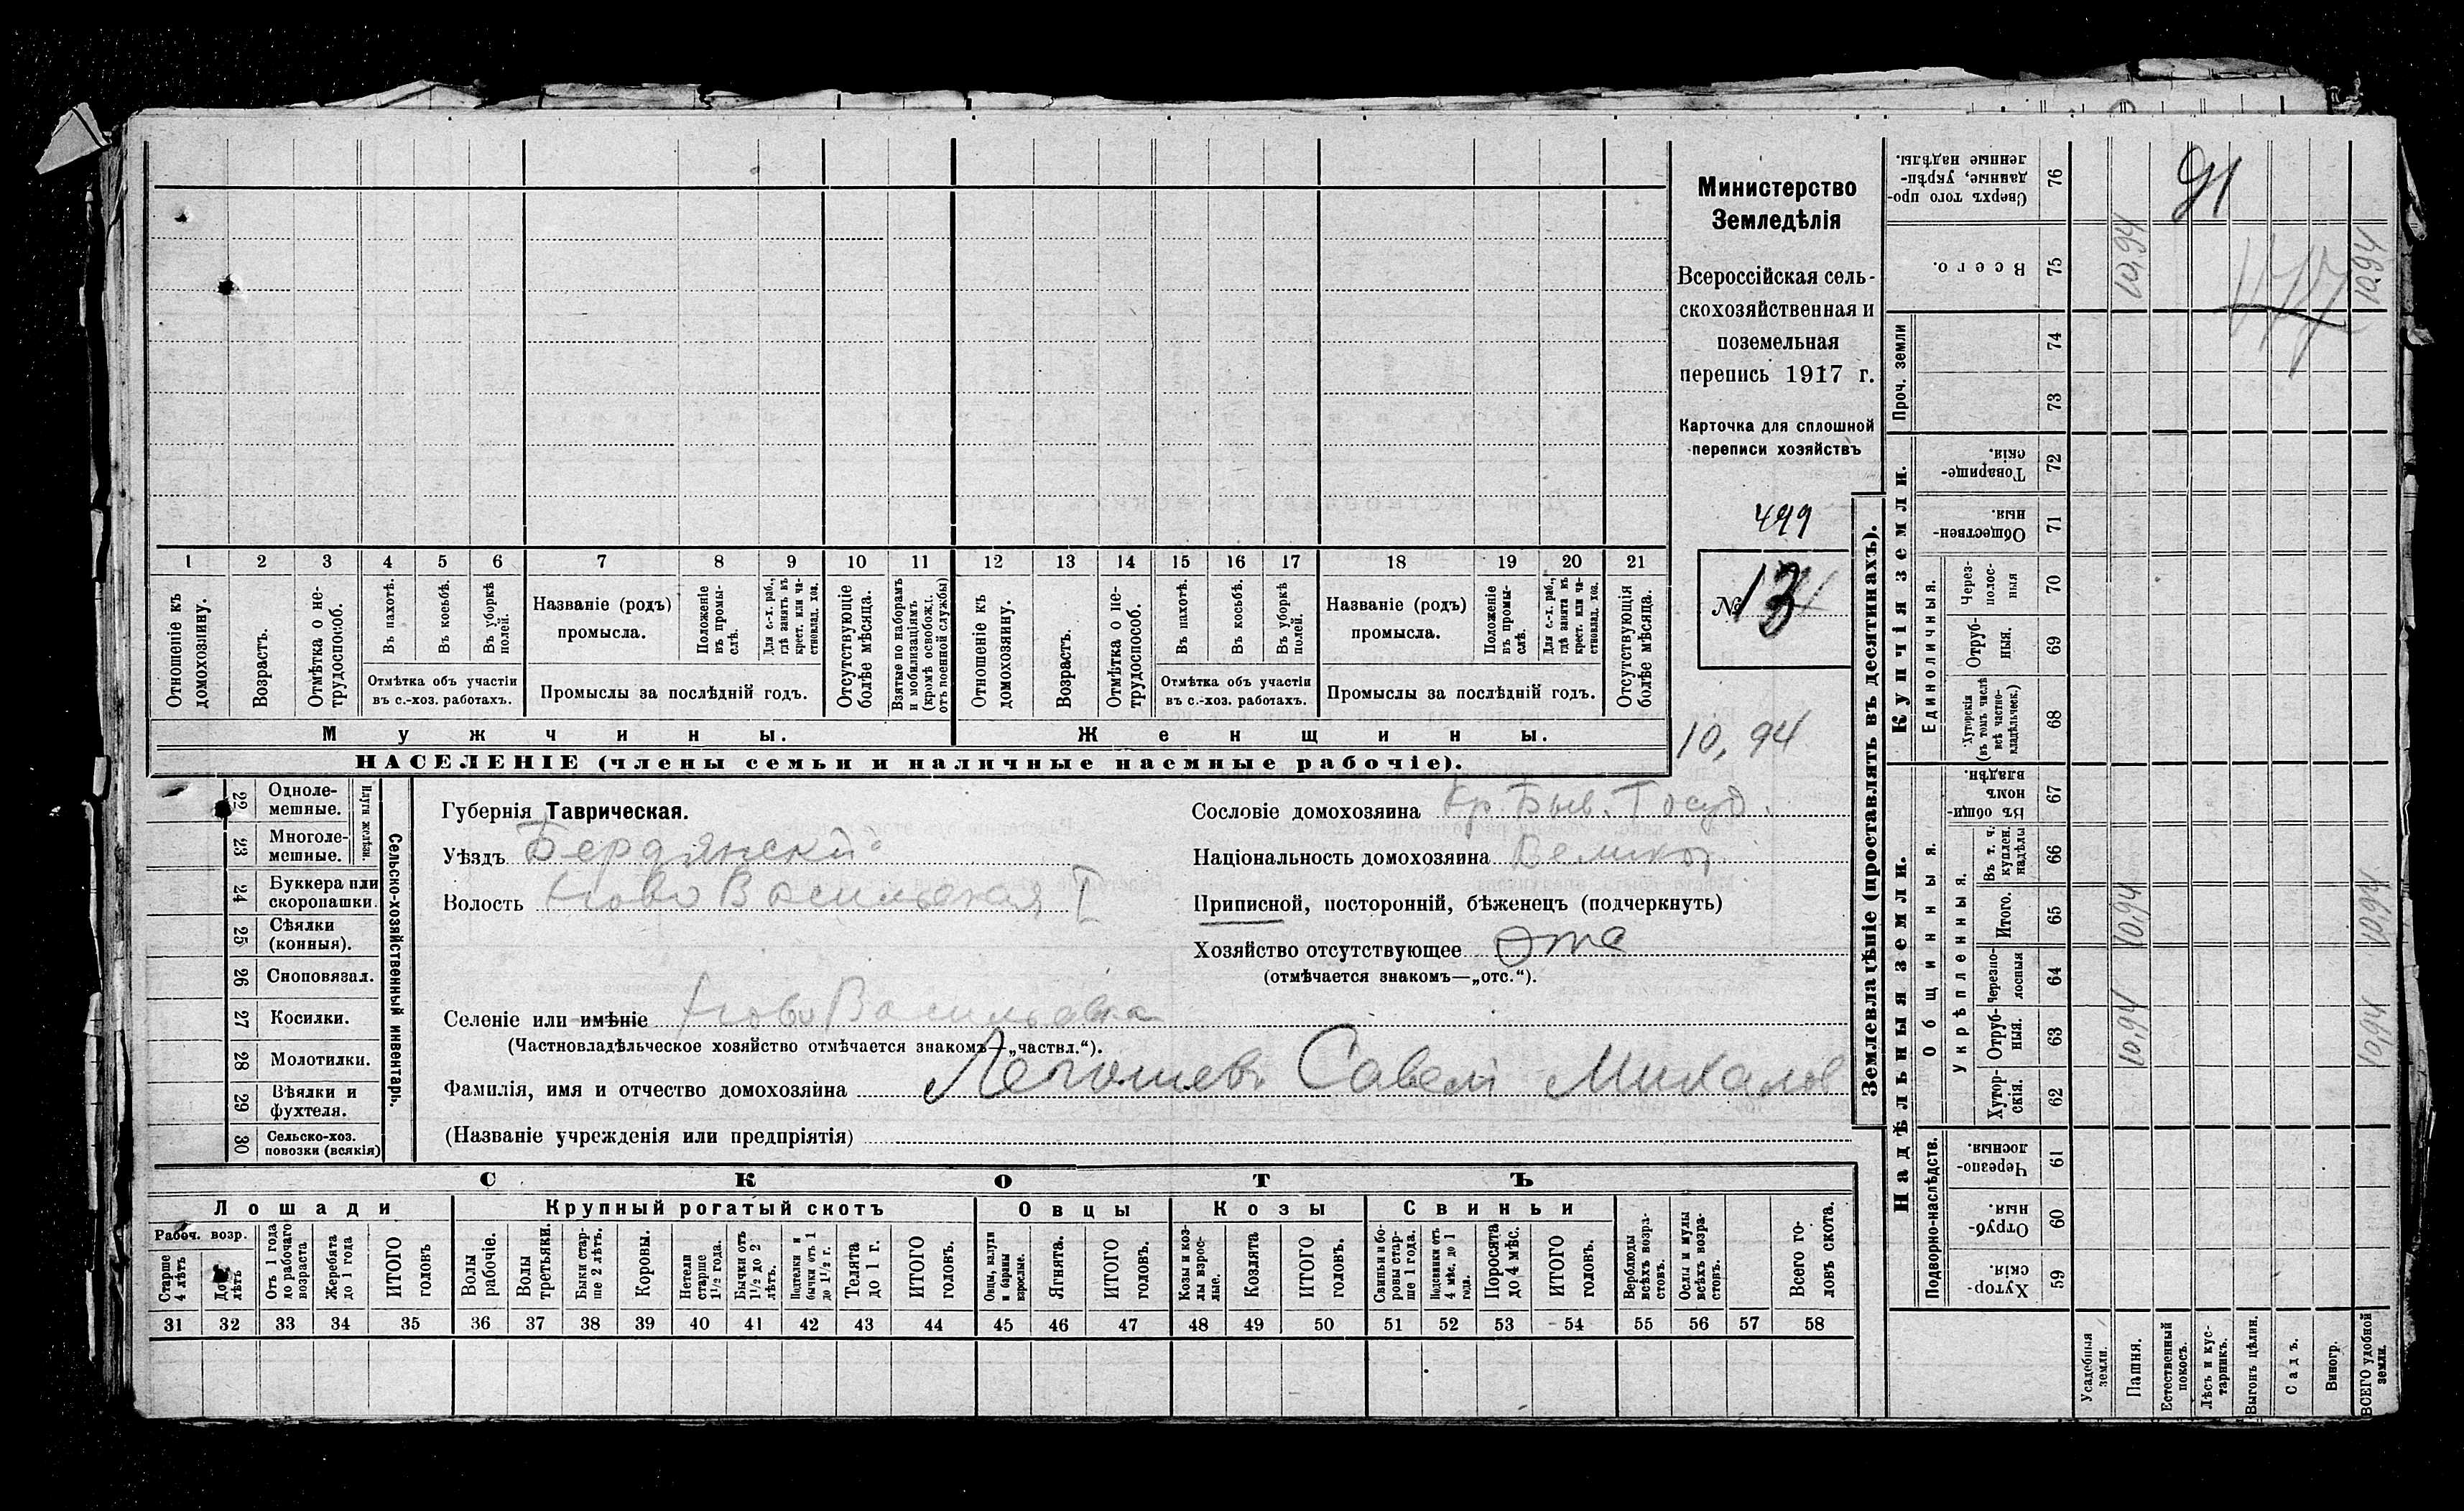 Министерство
Земледѣлія
Всероссійская сель-
скохозяйственная и
поземельная
перепись 1917 г.
Карточка для сплошной
переписи хозяйствъ
499
№ 13
10,94
1 2 3 4 5 6 7 8 9 10 11 12 13 14 15 16 17 18 19 20 21
Отношеніе къ домохозяину.
Возрастъ.
Отмѣтка о не-трудоспособ.
Въ пахотѣ.
Въ косьбѣ.
Въ уборкѣ полей.
Отмѣтка объ участіи
въ с.-хоз. работахъ.
Названіе (родъ)
промысла.
Положеніе въ промы-слѣ.
Для с.-х. раб., гдѣ занятъ въ крест. или ча-стновлад. хоз.
Промыслы за послѣдній годъ.
Отсутствующіе болѣе мѣсяца.
Взятые по наборамъ и мобилизаціямъ (кромѣ освобожд. отъ военной службы)
Отношеніе къ домохозяину.
Возрастъ.
Отмѣтка о не-трудоспособ.
Въ пахотѣ.
Въ косьбѣ.
Въ уборкѣ полей.
Отмѣтка объ участіи
въ с.-хоз. работахъ.
Названіе (родъ)
промысла.
Положеніе въ промы-слѣ.
Для с.-х. раб., гдѣ занята въ крест. или ча-стновлад. хоз.
Промыслы за послѣдній годъ.
Отсутствующія болѣе мѣсяца.
Мужчины.
Женщины.
НАСЕЛЕНІЕ (члены семьи и наличные наемные рабочіе).
22 Одноле-мешные.
23 Многоле-мешные.
Плуги желѣзн.
24 Буккера или скоропашки.
25 Сѣялки (конныя).
26 Сноповязал.
27 Косилки.
28 Молотилки.
29 Вѣялки и фухтеля.
30 Сельско-хоз. повозки (всякія)
Сельско-хозяйственный инвентарь.
Губернія Таврическая.
Уѣздъ Бердянскій
Волость Ново Васильевская I
Сословіе домохозяина Кр. Быв. Госуд.
Національность домохозяина Великор.
Приписной, посторонній, бѣженецъ (подчеркнуть)
Хозяйство отсутствующее Отс
(отмѣчается знакомъ—„отс.“).
Селеніе или имѣніе НовоВасильевка
(Частновладѣльческое хозяйство отмѣчается знакомъ—„частвл.“).
Фамилія, имя и отчество домохозяина Савелі Михалов
(Названіе учрежденія или предпріятія)
СКОТЪ
Лошади
Крупный рогатый скотъ
Овцы
Козы
Свиньи
Рабоч. возр.
Старше 4 лѣтъ
До 4 лѣтъ
Отъ 1 года до рабочаго возраста
Жеребята до 1 года
ИТОГО головъ
Волы рабочіе.
Волы третьяки.
Быки стар-ше 2 лѣтъ.
Коровы.
Нетели старше 1½ года.
Бычки отъ 1½ до 2 лѣтъ.
Подтелки и бычки отъ 1 до 1½ г.
Телята до 1 г.
ИТОГО головъ.
Овцы, валухи и бараны взрослые.
Ягнята.
ИТОГО головъ.
Козы и коз-лы взрос-лые.
Козлята
ИТОГО головъ.
Свиньи и бо-ровы стар-ше 1 года.
Подсвинки отъ 4 мѣс. до 1 года.
Поросята до 4 мѣс.
ИТОГО головъ.
Верблюды всѣхъ возра-стовъ.
Ослы и мулы всѣхъ возра-стовъ.
Всего го-ловъ скота.
31 32 33 34 35 36 37 38 39 40 41 42 43 44 45 46 47 48 49 50 51 52 53 54 55 56 57 58
Землевладѣніе (проставлять въ десятинахъ).
Надѣльныя земли.
Купчія земли.
Проч. земли
Подворно-наслѣдств.
Общинныя.
Укрѣпленныя.
Единоличныя.
Сверхъ того про-данные, укрѣп-ленные надѣлы. 76
91
Всего. 75 10,94 10,94
74
73
Товарище-скія. 72
Обществен-ныя. 71
Через-полос-ныя 70
Отруб-ныя. 69
Хуторскія (въ томъ числѣ всѣ частно-владѣльческ.) 68
Въ общи-номъ владѣн. 67
Въ т. ч. куплен. надѣлы 66
Итого. 65 10,94 10,94
Черезпо-лосныя 64
Отруб-ныя. 63 10,94 10,94
Хутор-скія. 62
Черезпо-лосныя 61
Отруб-ныя. 60
Хутор-скія. 59
Усадебныя земли.
Пашня.
Естественный покосъ.
Лѣсъ и кус-тарникъ.
Выгонъ цѣлин.
Садъ.
Виногр.
ВСЕГО удобной земли.